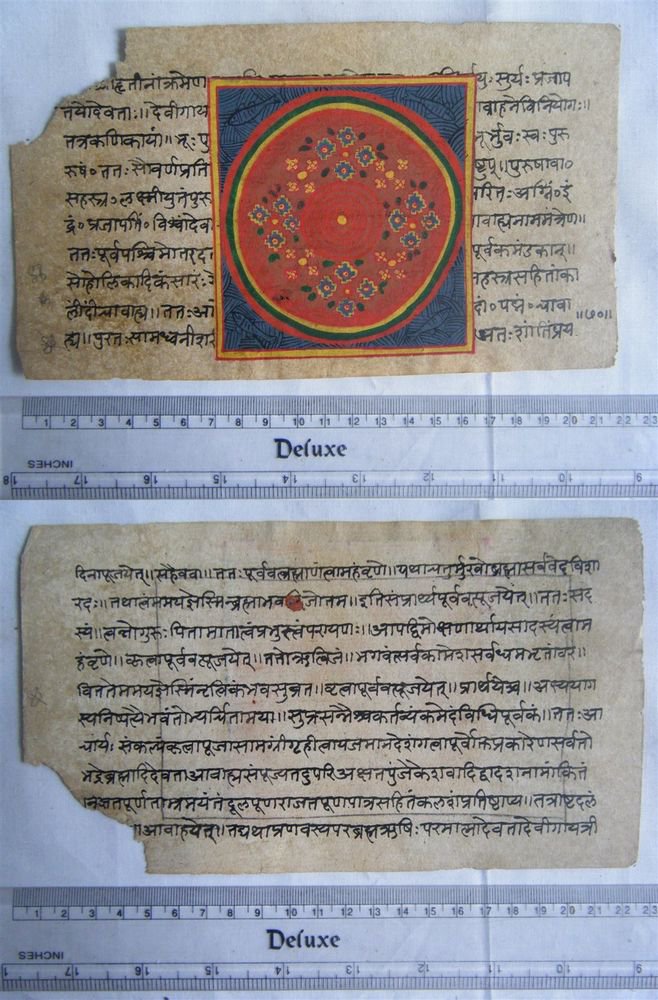 हृतीनां क्रमेण युः सूर्यः प्रजाप
तयोदेवताः॥देवीगाय वाहनेविनियोगः॥
तत्रकर्णिकायां॥ भूर्भुवः स्वः पुरु
रुषं॰ ततः सौवर्णप्रति ष्टुप्॥ पुरुषावा॰
सहस्त्र॰ लक्ष्मीयुतंपुरु रितः अग्निं॰ इं
द्रं॰ प्रजापतिं॰ विश्वांदेवा वाह्यनाममंत्रेण॥
ततः पूर्वपश्चिमोत्तरद पूर्वकमंडकान्॥
सहस्त्रसहितांका
लिंदींचावाह्य॥ ततः आ दां॰ पद्मं॰ चावा
ह्य॥ पुरतः सामध्वनीशर ॥७०॥
Deluxe
1 2 3 4 5 6 7 8 9 10 11 12 13 14 15 16 17 18 19 20 21 22 23
INCHES
18 17 16 15 14 13 12 11 10 9
दिनापूजयेत्॥ ततः पूर्ववद्ब्रह्माणंत्वामहंवृणे॥ यथाचतुर्मुखोब्रह्मासर्ववेदविशा
रदः॥ तथात्वंममयज्ञेस्मिन्ब्रह्माभवद्विजोत्तम॥ इतिसंप्रार्थ्यपूर्ववत्पूजयेत्॥ ततः सद
स्यं॥ त्वन्नोगुरुः पितामातात्वंप्रभुस्त्वंपरायणः॥ आपद्विमोक्षणार्थायसादस्यंत्वाम
हंवृणे॥ पूर्ववत्पूजयेत्॥ ततोऋत्विजं॥ भगवंत्सर्वकामेशसर्वधर्मभृतांवर॥
विततेममयज्ञेस्मिन्नृत्विकंभवसुव्रत॥ वृत्वापूर्ववत्पूजयेत्॥ प्रार्थयेच्च॥ अस्ययाग
स्यनिष्पत्यैभवंतोभ्यर्थितामया॥ सुप्रसन्नैश्चकर्तव्यंकर्मेदंविधिपूर्वकं॥ ततः आ
चार्यः संकल्पंकृत्वापूजासामग्रींगृहीत्वायजमानदेशंगत्वापूर्वोक्तप्रकारेणसर्वतो
भद्रेब्रह्मादिदेवताआवाह्यसंपूज्यतदुपरिअक्षतपुंजकेशवादिद्वादशनामांकितं
तंदूलपूर्णराजतपूर्णपात्रसहितंकलशंप्रतिष्ठाप्य॥ तत्राष्टदलं
आवाहयेत्॥ तद्यथाप्रणवस्यपरब्रह्मऋषिः परमात्मादेवतादेवीगायत्री
Deluxe
1 2 3 4 5 6 7 8 9 10 11 12 13 14 15 16 17 18 19 20 21 22 23
INCHES
17 16 15 14 13 12 11 10 9